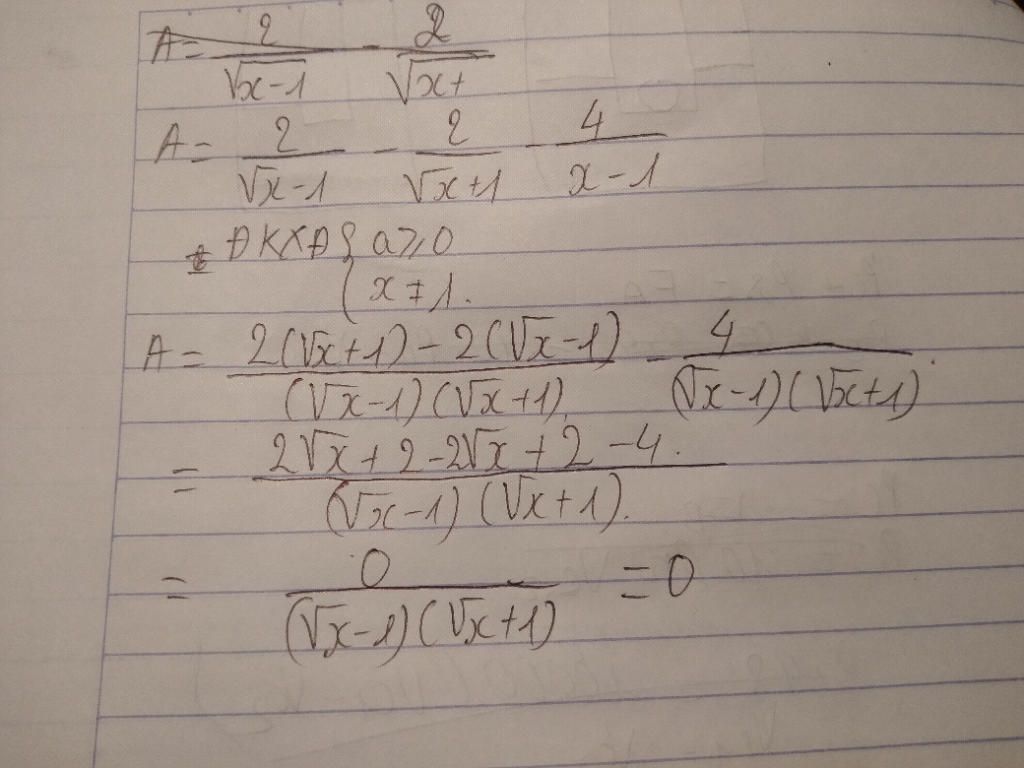 A = 2/(√x-1) - 2/(√x+
A = 2/(√x-1) - 2/(√x+1) - 4/(x-1)
ĐKXĐ { a ≥ 0
{ x ≠ 1.
A = (2(√x+1) - 2(√x-1))/((√x-1)(√x+1)) - 4/((√x-1)(√x+1)).
= (2√x + 2 - 2√x + 2 - 4.)/((√x-1)(√x+1).)
= 0/((√x-1)(√x+1)) = 0